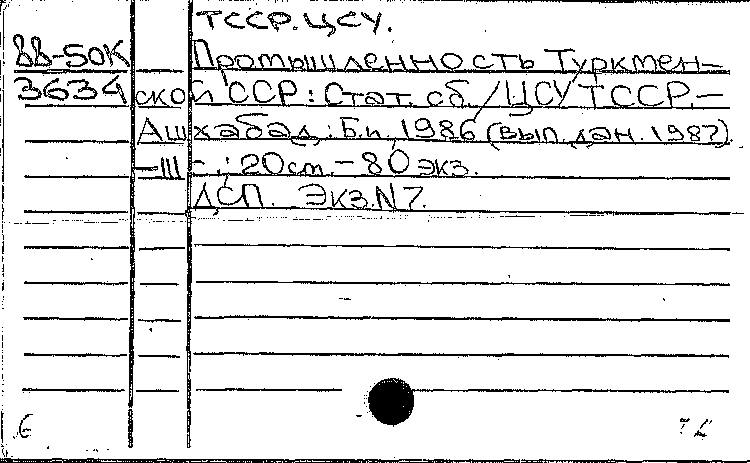 ТССР. ЦСУ.
88-50К Промышленность Туркмен-
3634 ской ССР: Стат. сб. / ЦСУ ТССР. -
Ашхабад: Б.и., 1986 (вып. дан. 1987).
- III - .; 20 см. - 80 экз.
ДСП. Экз. N 7.